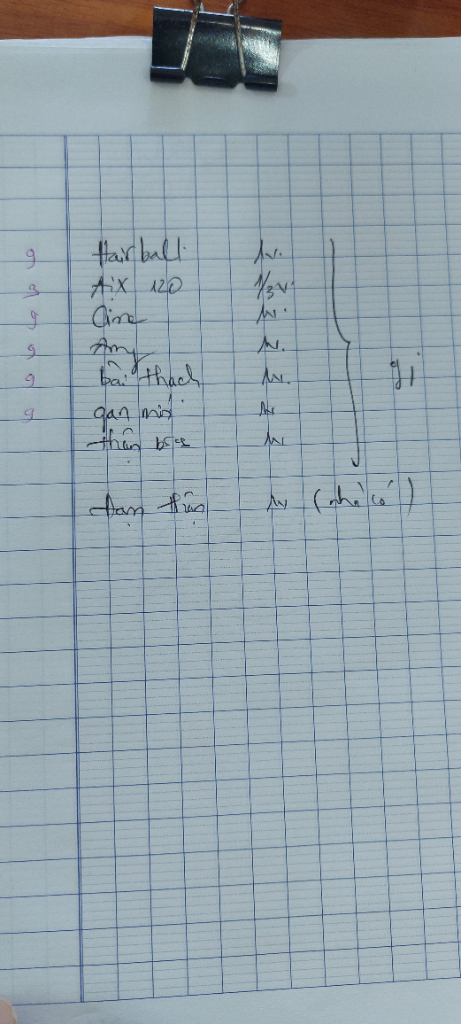 9 Hairball 1v.
3 Aix 120 1/3v.
9 Cine 1v.
9 Amy 1v.
9 bài thạch 1v.
9 gan mới 1v
thận 1v
Đạm thận 1v (nhà có)